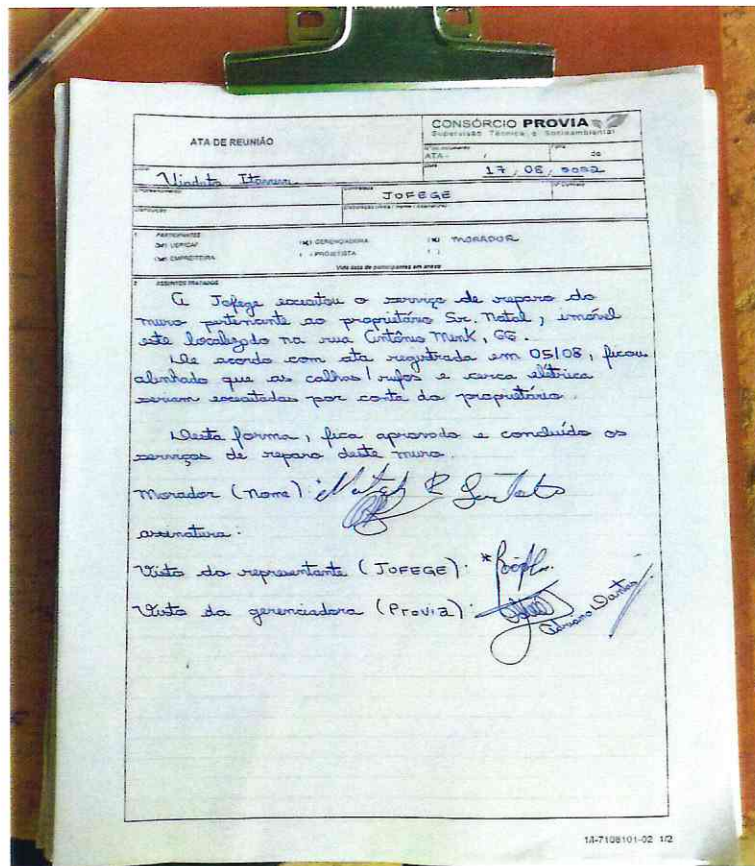 ATA DE REUNIÃO
CONSÓRCIO PROVIA
Supervisão Técnica e Socioambiental
ATA - / de
Viaduto
17, 08, 2022
JOFEGE
1 PARTICIPANTES
(x) GERENCIADORA
(x) MORADOR
(x) EMPREITEIRA
( ) PROJETISTA
( )
Vide lista de participantes em anexo
2 ASSUNTOS TRATADOS
A Jofege executou o serviço de reparo do
muro pertencente ao proprietário Sr. Natal, imóvel
este localizado na rua Antônio Menk, 66.
De acordo com ata registrada em 05/08, ficou
alinhado que as calhas / rufos e cerca elétrica
seriam executadas por conta do proprietário.
Desta forma, fica aprovado e concluído os
serviços de reparo deste muro.
Morador (nome):
assinatura:
Visto do representante (JOFEGE):
Visto da gerenciadora (Provia):
Adriano Dantas
1/4-7108101-02 1/2